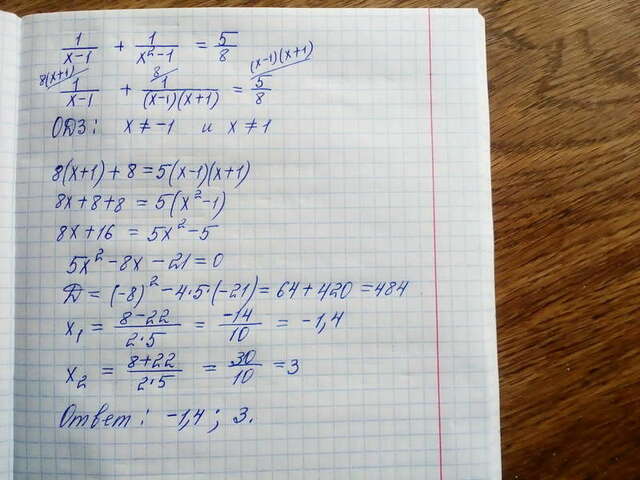 1/(x-1) + 1/(x²-1) = 5/8
8(x+1) 8 (x-1)(x+1)
1/(x-1) + 1/((x-1)(x+1)) = 5/8
ОДЗ: x≠-1 и x≠1
8(x+1)+8=5(x-1)(x+1)
8x+8+8 = 5(x²-1)
8x+16 = 5x²-5
5x²-8x-21=0
Д=(-8)²-4·5·(-21)=64+420=484
x₁ = (8-22)/(2·5) = -14/10 = -1,4
x₂ = (8+22)/(2·5) = 30/10 = 3
Ответ: -1,4; 3.